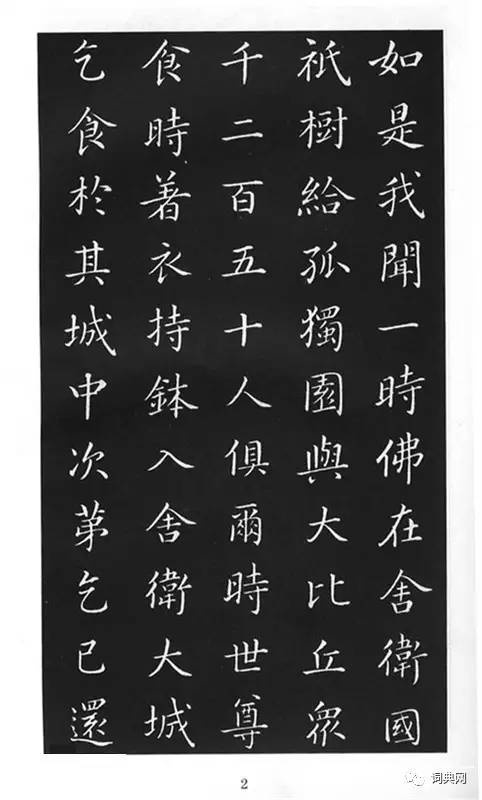 如是我聞一時佛在舍衛國
祇樹給孤獨園與大比丘眾
千二百五十人俱爾時世尊
食時著衣持鉢入舍衛大城
乞食於其城中次第乞已還
2
词典网